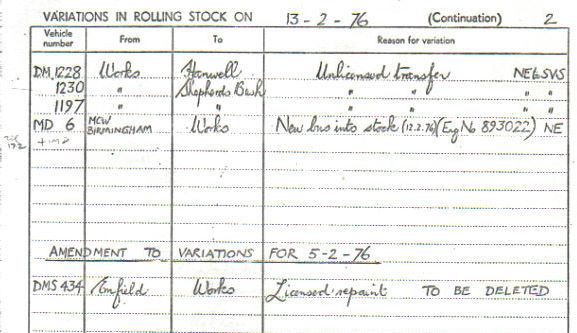 VARIATIONS IN ROLLING STOCK ON 13-2-76 (Continuation) 2
Vehicle number From To Reason for variation
DM 1228 Works Hanwell Unlicensed transfer NE & SVS
1230 " Shepherds Bush " " " "
1197 " " " " " "
MD 6 MCW BIRMINGHAM Works New bus into stock (12.2.76) (Eng No 893022) NE
AMENDMENT TO VARIATIONS FOR 5-2-76
DMS 434 Enfield Works Licensed repaint TO BE DELETED